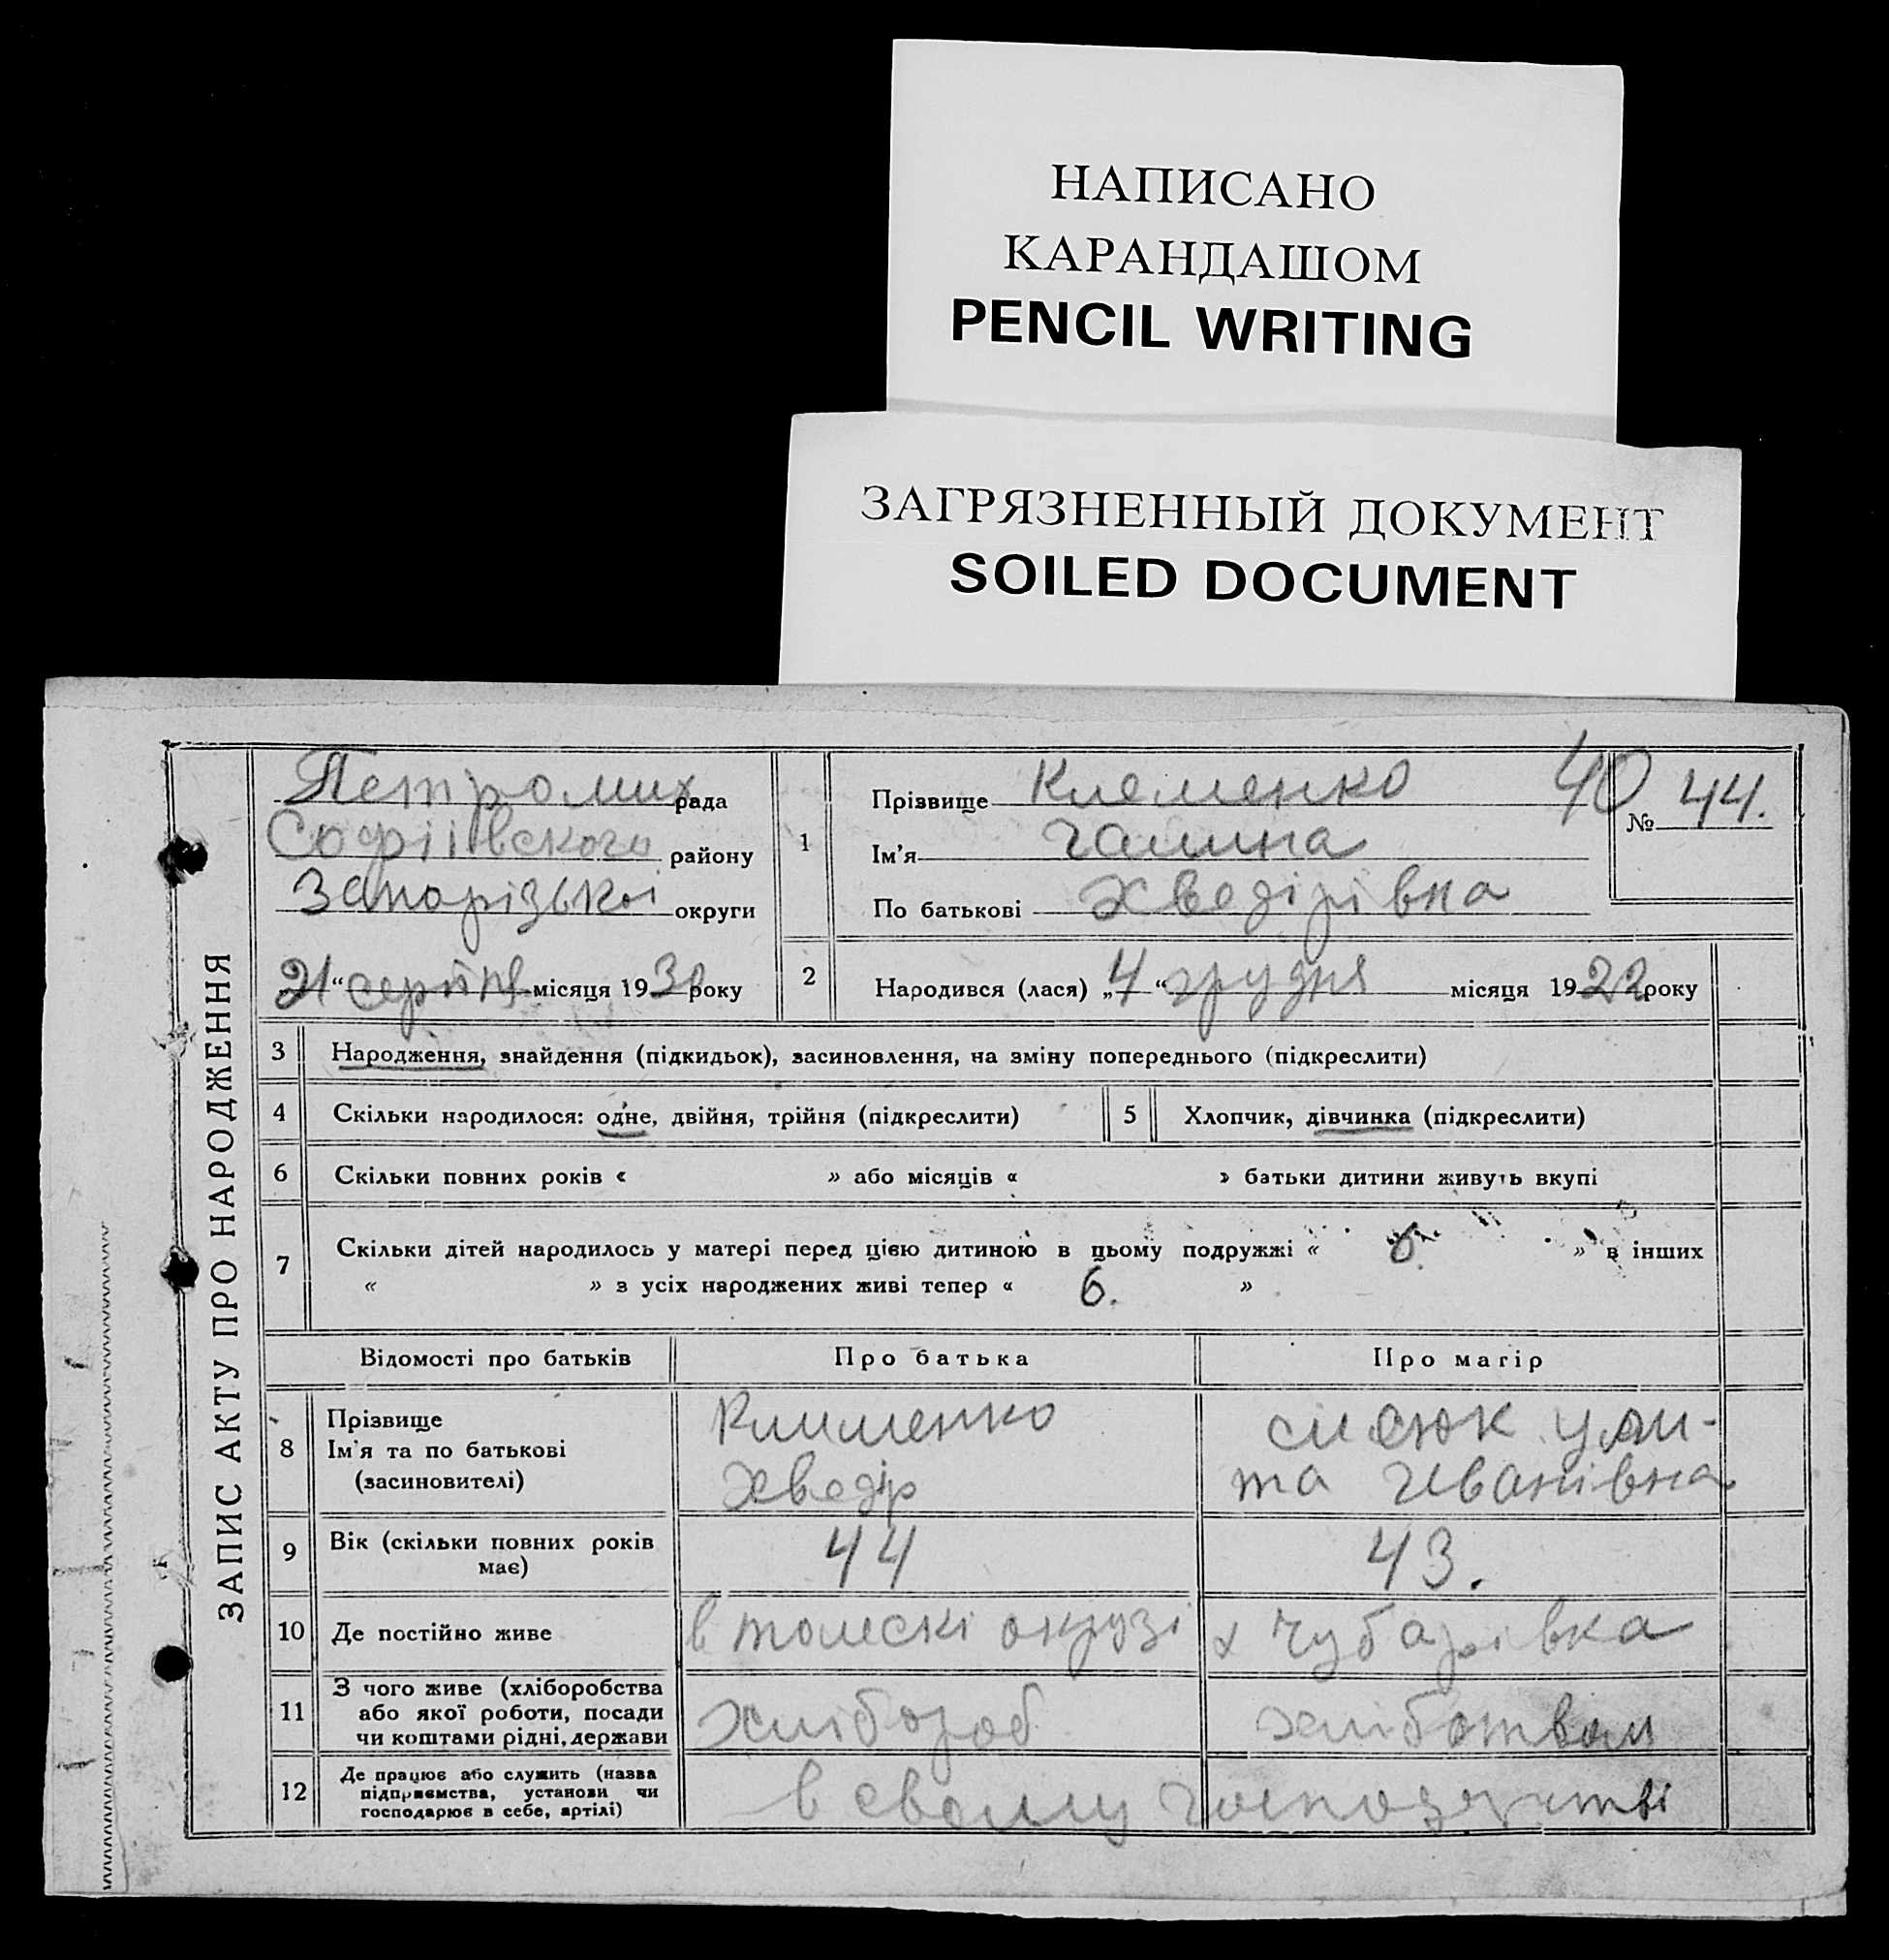 НАПИСАНО
КАРАНДАШОМ
PENCIL WRITING
ЗАГРЯЗНЕННЫЙ ДОКУМЕНТ
SOILED DOCUMENT
ЗАПИС АКТУ ПРО НАРОДЖЕННЯ
Петромих рада
Софіївского району
Запорізької округи
„21“ серпня місяця 1930 року
40
№ 44.
1 Прізвище Клеменко
Ім’я Галина
По батькові Хведірівна
2 Народився (лася) „4“ грудня місяця 1922 року
3 Народження, знайдення (підкидьок), засиновлення, на зміну попереднього (підкреслити)
4 Скільки народилося: одне, двійня, трійня (підкреслити) 5 Хлопчик, дівчинка (підкреслити)
6 Скільки повних років « » або місяців « » батьки дитини живуть вкупі
7 Скільки дітей народилось у матері перед цією дитиною в цьому подружжі « 6. » в інших
« » з усіх народжених живі тепер « 6. »
Відомості про батьків Про батька Про матір
8 Прізвище
Ім’я та по батькові
(засиновителі)
Клименко
Хведір
Іванівна
9 Вік (скільки повних років
має)
44 43.
10 Де постійно живе в окрузі х Чубарівка
11 З чого живе (хліборобства
або якої роботи, посади
чи коштами рідні, держави
хлібороб
12 Де працює або служить (назва
підприємства, установи чи
господарює в себе, артілі)
в своему